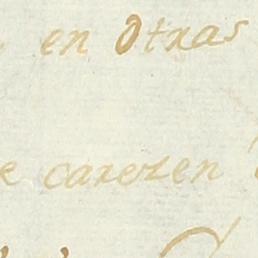 en Otras
e carezen